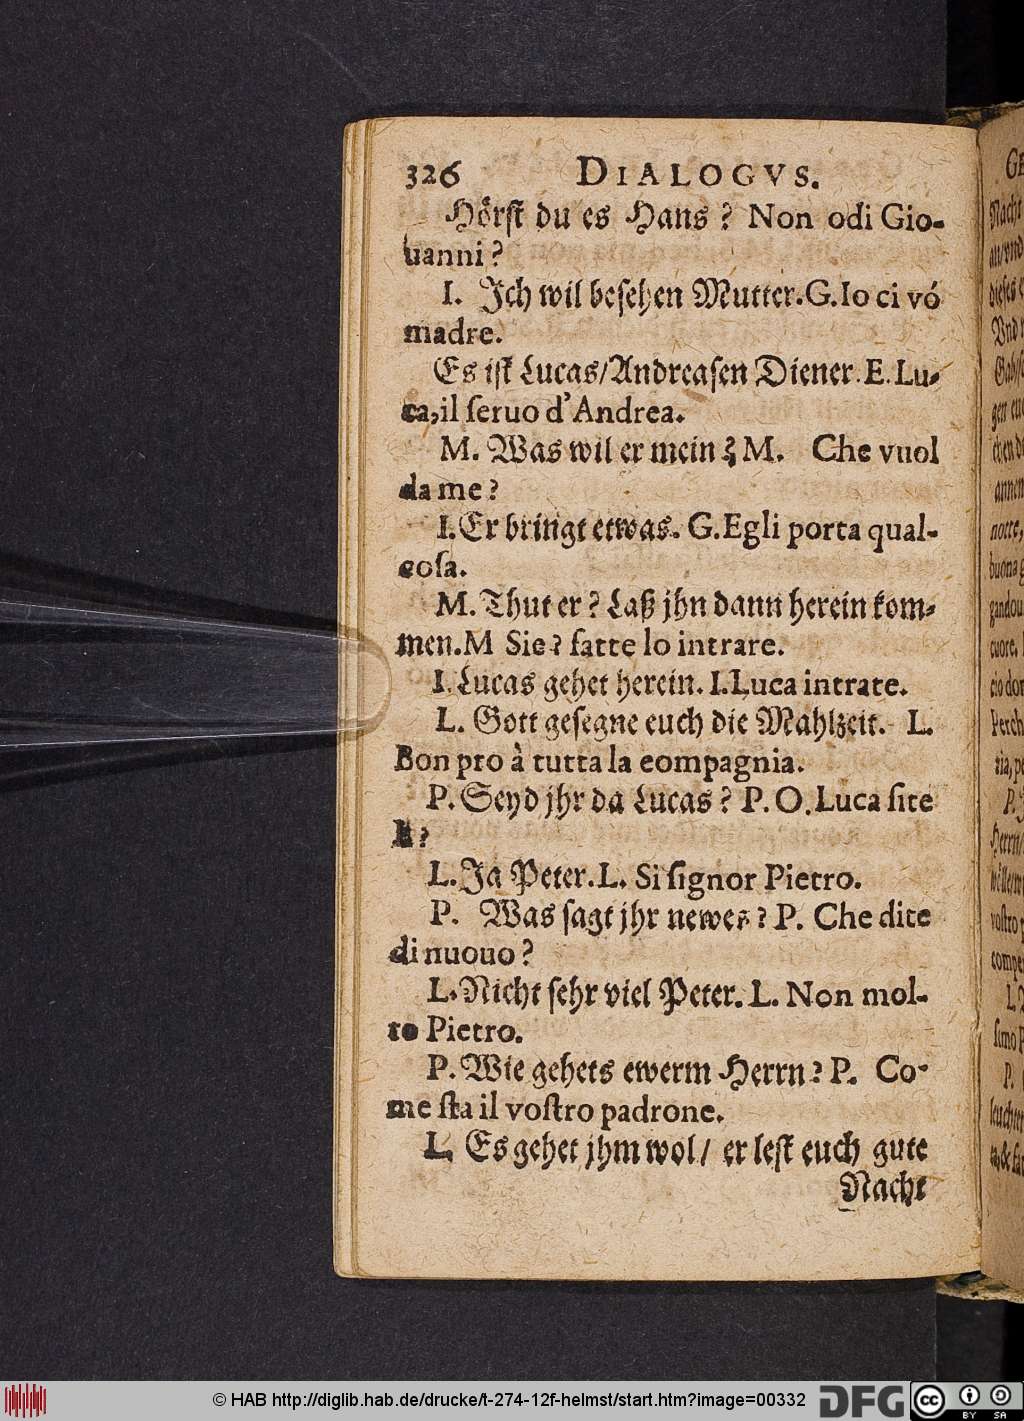 326 DIALOGVS.
Hörſt du es Hans? Non odi Gio-
uanni?
I. Jch wil beſehen Mutter. G. Io ci vó
madre.
Es iſt Lucas/Andreaſen Diener. E. Lu-
ca, il ſeruo d'Andrea.
M. Was wil er mein? M. Che vuol
da me?
I. Er bringt etwas. G. Egli porta qual-
coſa.
M. Thut er? Laß jhn dann herein kom-
men. M Sie? fatte lo intrare.
I. Lucas gehet herein. I. Luca intrate.
L. Gott geſegne euch die Mahlzeit. L.
Bon pro à tutta la compagnia.
P. Seyd jhr da Lucas? P. O. Luca ſite
li?
L. Ja Peter. L. Si ſignor Pietro.
P. Was ſagt jhr newes? P. Che dite
di nuouo?
L. Nicht ſehr viel Peter. L. Non mol-
to Pietro.
P. Wie gehets ewerm Herrn? P. Co-
me ſta il voſtro padrone.
L. Es gehet jhm wol/ er leſt euch gute
Nacht
© HAB http://diglib.hab.de/drucke/t-274-12f-helmst/start.htm?image=00332
DFG
cc BY SA